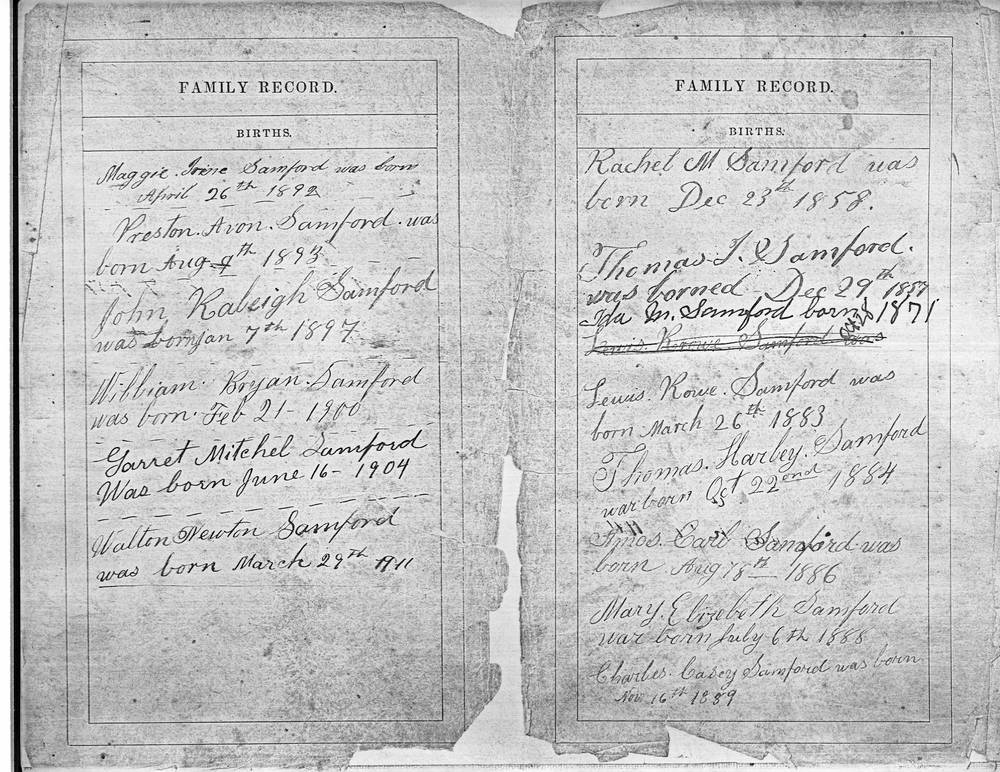 FAMILY RECORD.
BIRTHS.
Maggie Irene Samford was born
April 26th 1892
Preston. Avon. Samford. was
born Aug 9th 1893
John Raleigh Samford
was born Jan 7th 1897
William. Bryan. Samford
was born. Feb 21 - 1900
Garret Mitchel Samford
Was born June 16 - 1904
Walton Newton Samford
was born March 29th 1911
FAMILY RECORD.
BIRTHS.
Rachel M Samford was
born Dec 23th 1858.
Thomas. J. Samford.
was borned Dec 29th 1857
Ida M. Samford born 1871
Oct 28
Lewis. Roowe. Samford was
Lewis. Rowe. Samford was
born March 26th 1883
Thomas. Harley. Samford
was born Oct 22end 1884
Amos. Earl Samford was
born Aug 18th 1886
Mary. Elizebeth Samford
was born July 6th 1888
Charles. Casey Samford was born
Nov 16th 1889